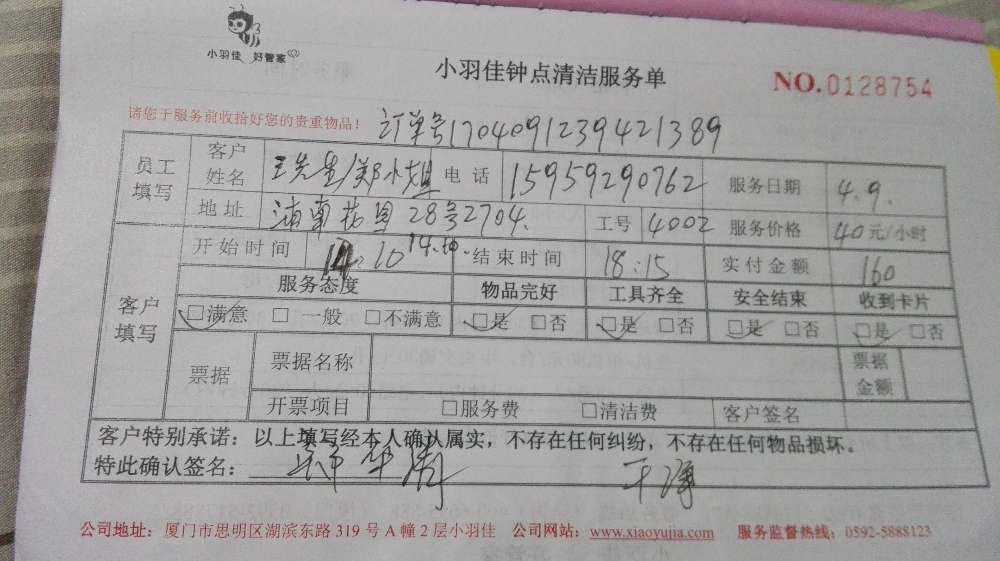 小羽佳 好管家
小羽佳钟点清洁服务单
NO.0128754
请您于服务前收拾好您的贵重物品！
订单号1704091239421389
员工填写 客户姓名 王先生/郑小姐 电话 15959290762 服务日期 4.9.
地址 浦南花园28号2704. 工号 4002 服务价格 40元/小时
客户填写 开始时间 14:10 14.10. 结束时间 18:15 实付金额 160
服务态度 物品完好 工具齐全 安全结束 收到卡片
☑满意 □一般 □不满意 ☑是 □否 ☑是 □否 ☑是 □否 ☑是 □否
票据 票据名称 票据金额
开票项目 □服务费 □清洁费 客户签名
客户特别承诺：以上填写经本人确认属实，不存在任何纠纷，不存在任何物品损坏。
特此确认签名：
公司地址：厦门市思明区湖滨东路319号A幢2层小羽佳 公司网站：www.xiaoyujia.com 服务监督热线：0592-5888123